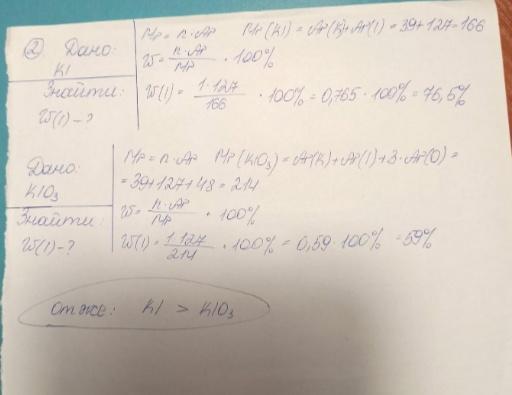 ② Дано:
KI
Знайти:
W(I) - ?
Mr = n · Ar Mr(KI) = Ar(K) + Ar(I) = 39 + 127 = 166
W = n · Ar / Mr · 100%
W(I) = 1 · 127 / 166 · 100% = 0,765 · 100% = 76,5%
Дано:
KIO₃
Знайти:
W(I) - ?
Mr = n · Ar Mr(KIO₃) = Ar(K) + Ar(I) + 3 · Ar(O) =
= 39 + 127 + 48 = 214
W = n · Ar / Mr · 100%
W(I) = 1 · 127 / 214 · 100% = 0,59 · 100% = 59%
отже: KI > KIO₃